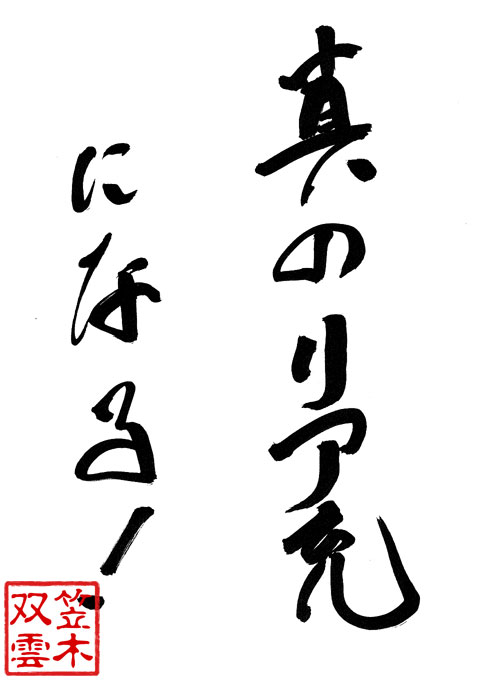 真のリア充
になる！
笠木
双雲